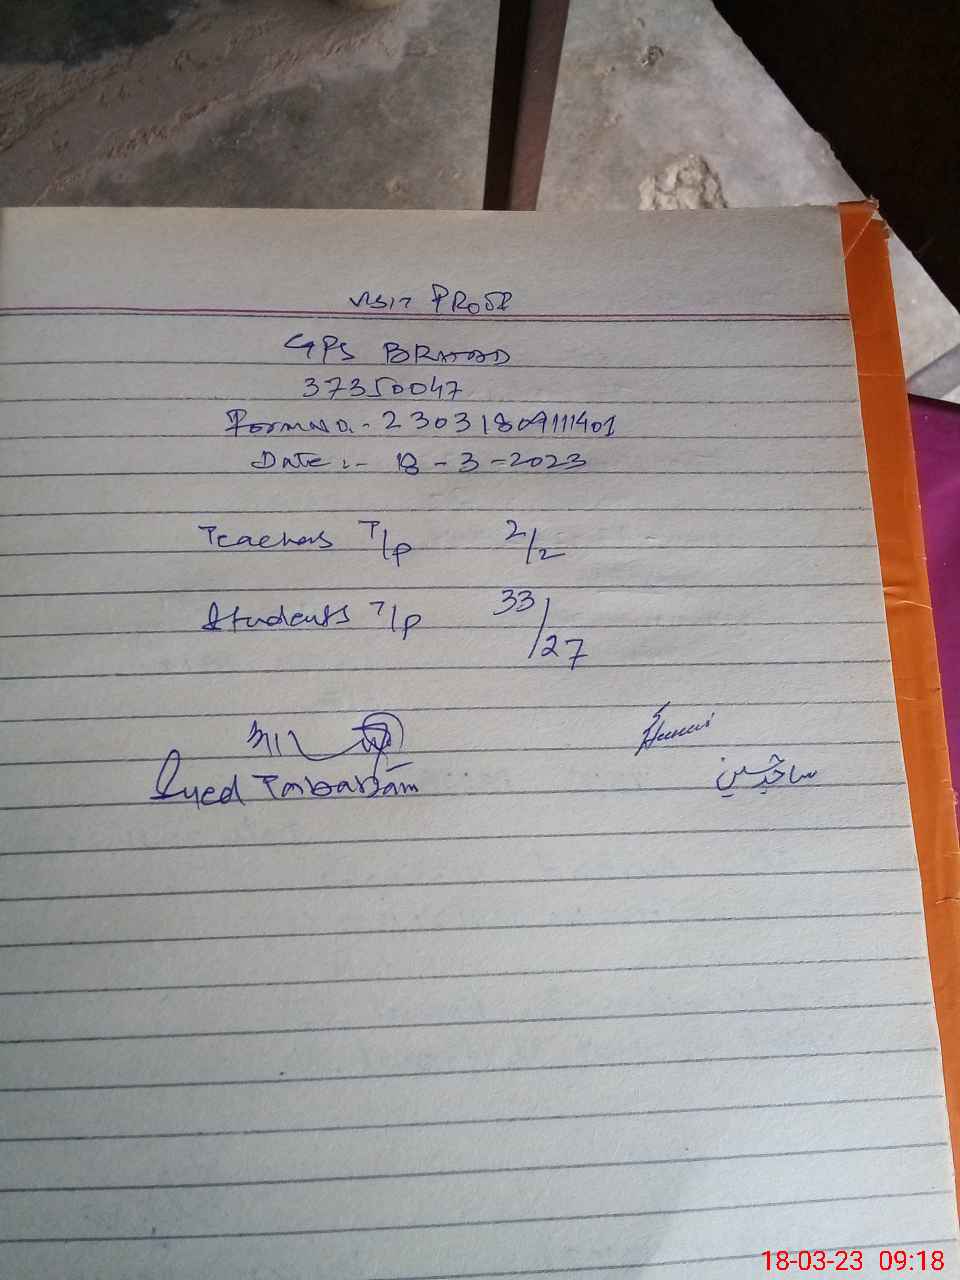 VISIT PROOF
GPS
37350047
Form No.- 2303180911401
Date :- 18 - 3 - 2023
Teachers T/P 2/2
Students T/P 33/27
Syed
ساجد حسین
18-03-23 09:18